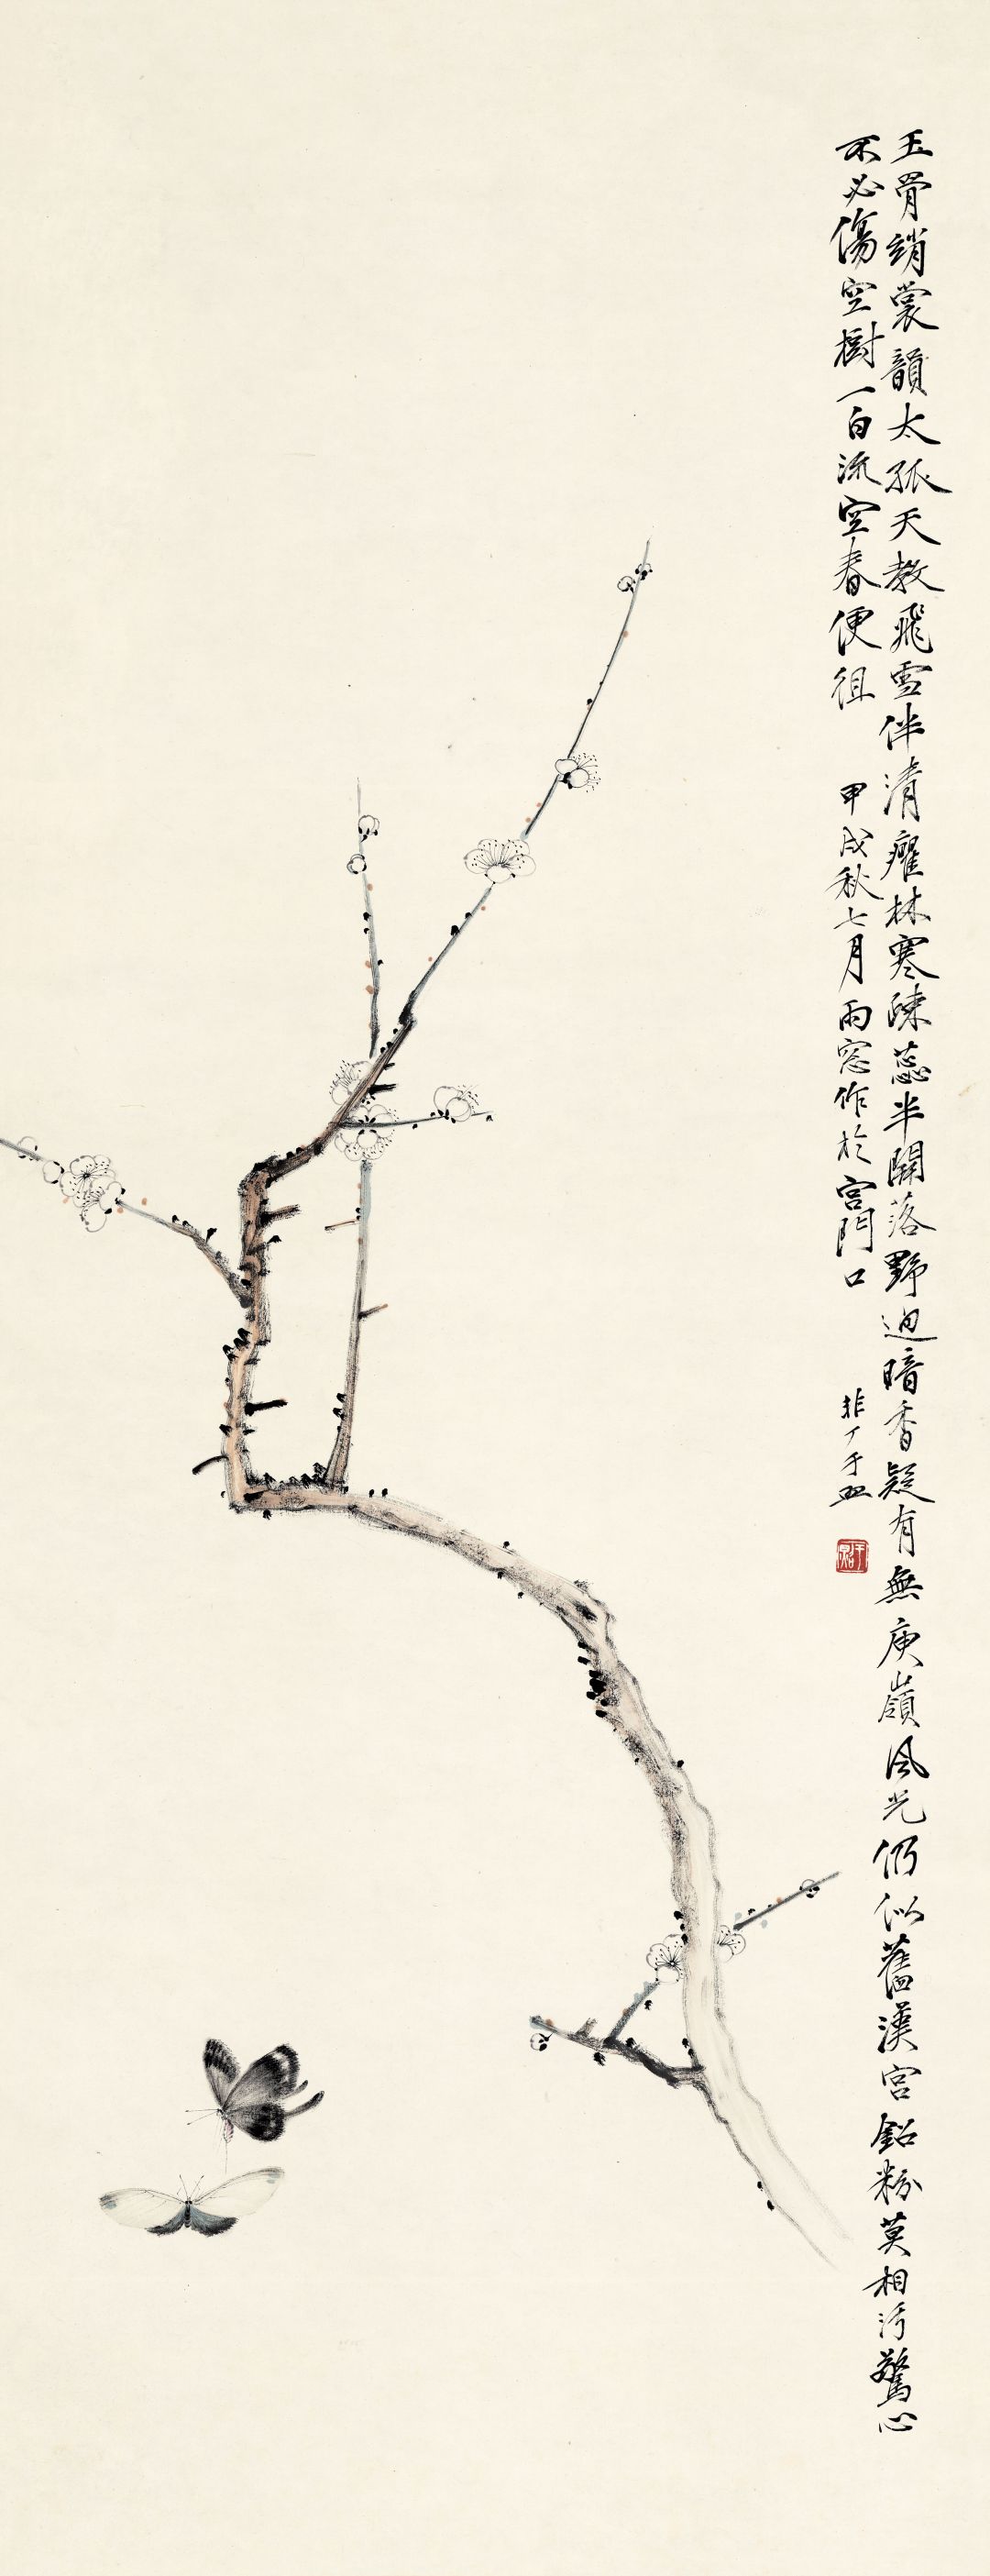 玉骨綃裳韻太孤天教飛雪伴清癯林寒疎蕊半開落野迥暗香疑有無庾嶺風光仍似舊漢宮鉛粉莫相汚驚心
不必傷空樹一白流空春便徂 甲戌秋七月雨窓作於宮門口 非厂于照